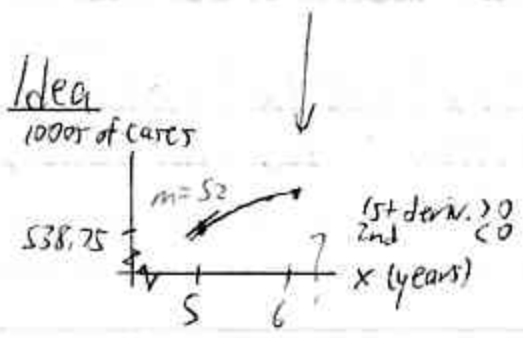 Idea
1000s of cases
m=52
538.75
1st deriv. > 0
2nd < 0
?
x (years)
5
6